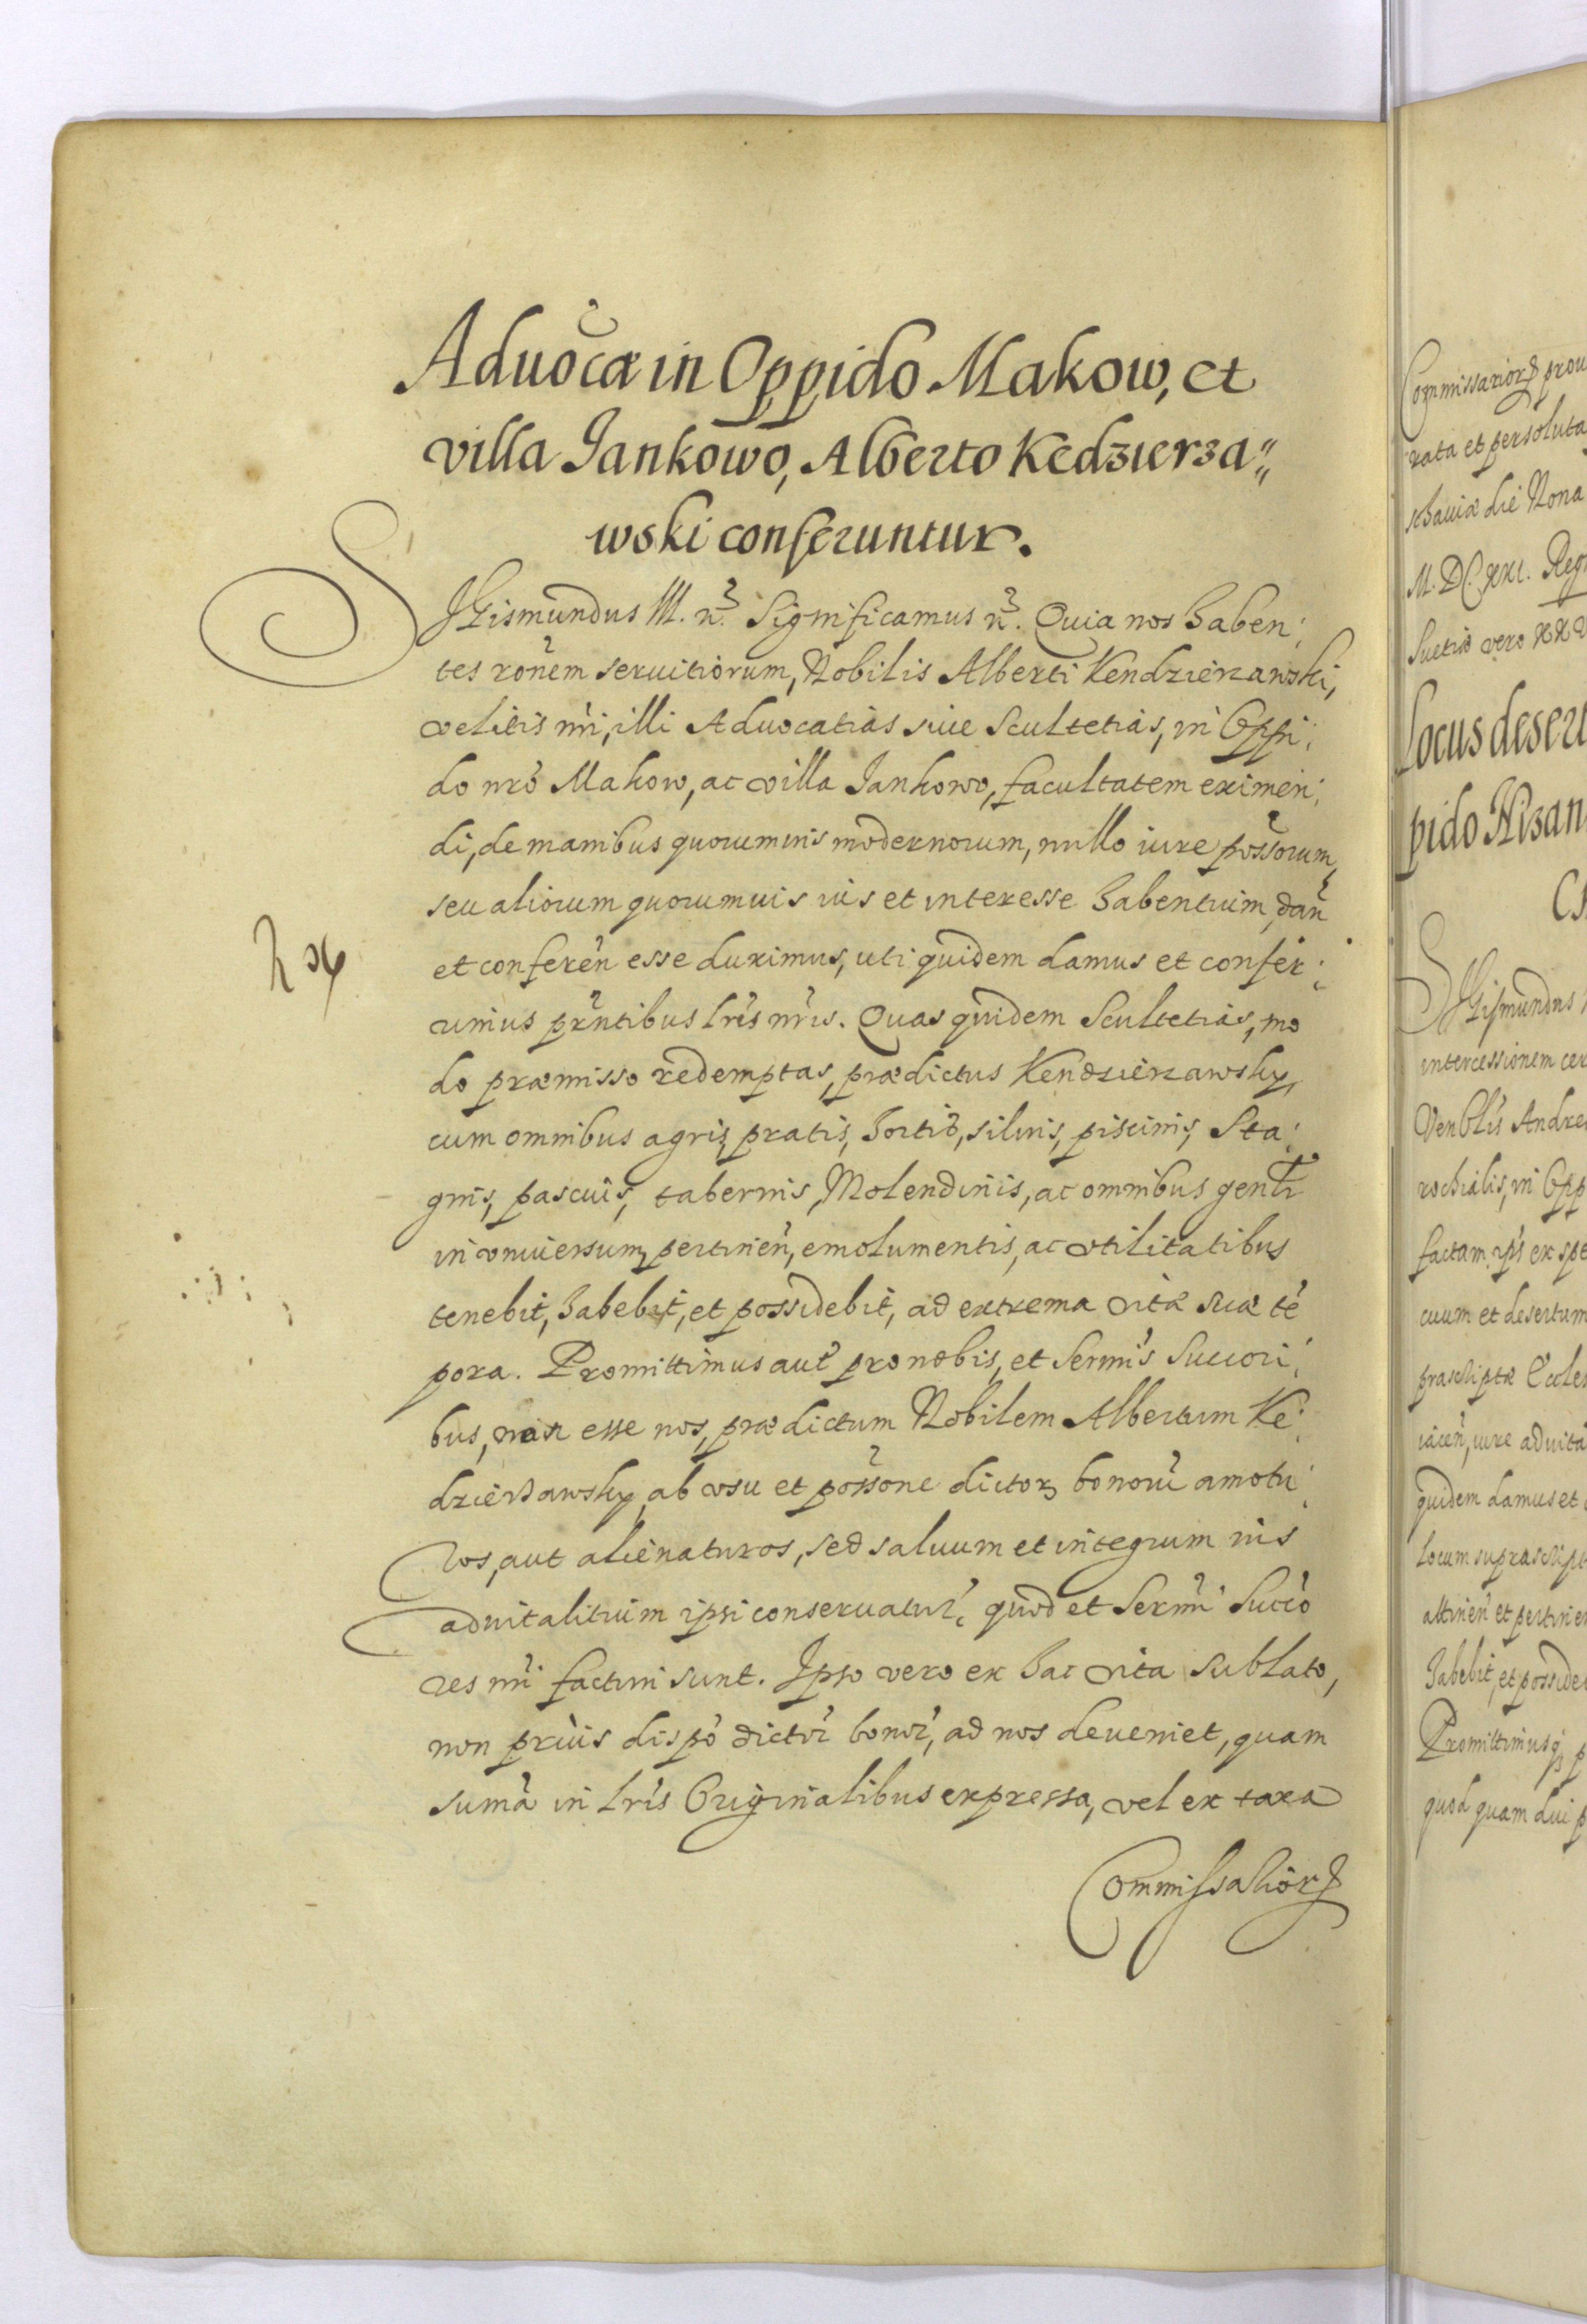 Aduocæ in Oppido Makow, et
villa Jankowo, Alberto Kedzierza⸗
wski conferuntur.
SJGismundus III. n̄. Significamus n̄. Quia nos haben:
tes rōnem seruitiorum, Nobilis Alberti Kendzierzawski,
velitis nr̄i, illi Aduocatias siue Scultetias, in Oppi:
do nr̄o Makow, ac villa Jankowo, facultatem eximen:
di, de manibus quorumuis modernorum, nullo iure poss̄orum,
seu aliorum quorumuis ius et interesse habentium, dan̄
et conferen̄ esse duximus, uti quidem damus et confer:
rimus prn̄tibus lr̄is nr̄is. Quas quidem Scultetias, mo
do præmisso redemptas, prædictus Kendzierzawsky,
cum omnibus agris, pratis, hortis, siluis, piscinis, Sta:
gnis, pascuis, tabernis, Molendinis, ac omnibus gen̄lr
in vniuersum pertinen̄, emolumentis, ac vtilitatibus
tenebit, habebit, et possidebit, ad extrema vitæ suæ tē
pora. Promittimus aut̄ pro nobis, et Serm̄is Succori:
bus, non esse nos, prædictum Nobilem Albertum Ke:
dzierzawsky ab vsu et poss̄one dictorꝝ bonorū amotu:
ros, aut alienaturos, sed saluum et integrum ius
aduitalitium ipsi conseruatur̄, quod et Serm̄i Succo
res nr̄i facturi sunt. Ipso vero ex hac vita sublato,
non prius dispō dictor̄ bonor̄, ad nos deueniet, quam
sum̄a in lr̄is Originalibus expressa, vel ex taxa
Commissariorꝝ
Commissariorꝝ prou
rata et persoluta
schauiæ die Nona
M.DC.XXI. Reg
Suetiæ vero XXV
Locus deser
pido Nizan
SJGismundus
intercessionem cer
Venbl̄is Andre
rochialis, in Opp
factam, ip̄s ex spe
cuum et desertum
præscriptæ Eccles
iacen̄, iure aduita
quidem damus et
locum suprascript
attinen̄ et pertinen
habebit, et posside
Promittimusq; p
quod quam diu p